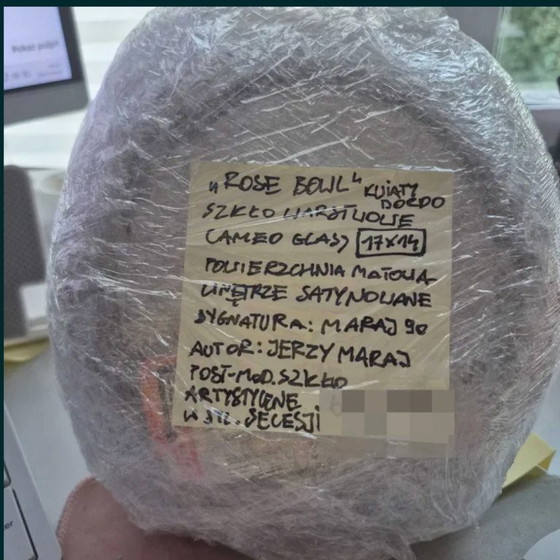 Pokaż
„ROSE BOWL" KWIATY
BORDO
SZKŁO WARSTWOWE
CAMEO GLASS 17x14
POWIERZCHNIA MATOWA
WNĘTRZE SATYNOWANE
SYGNATURA: MARAJ 90
AUTOR: JERZY MARAJ
POST-MOD. SZKŁO
ARTYSTYCZNE
W STL. SECESJI